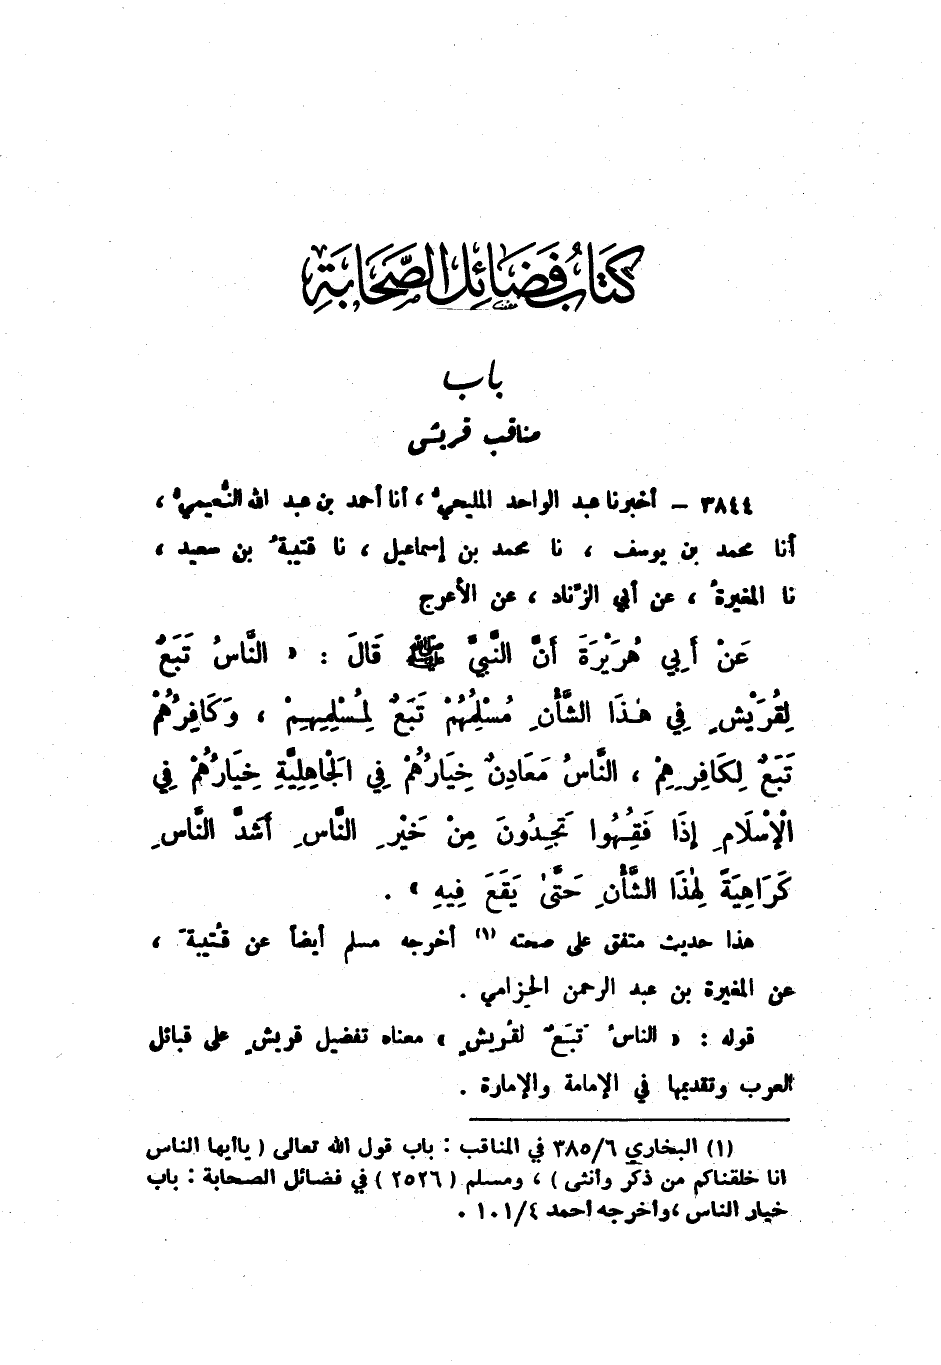 كِتَابُ فَضَائِلِ الصَّحَابَةِ
باب
مناقب قريش
٣٨٤٤ – أخبرنا عبد الواحد المليحيُّ ، أنا أحمد بن عبد الله النُّعيميُّ ،
أنا محمد بن يوسف ، نا محمد بن إسماعيل ، نا قتيبةُ بن سعيد ،
نا المغيرةُ ، عن أبي الزِّناد ، عن الأعرج
عَنْ أَبِي هُرَيْرَةَ أَنَّ النَّبِيَّ ﷺ قَالَ : « النَّاسُ تَبَعٌ
لِقُرَيْشٍ فِي هٰذَا الشَّأْنِ مُسْلِمُهُمْ تَبَعٌ لِمُسْلِمِهِمْ ، وَكَافِرُهُمْ
تَبَعٌ لِكَافِرِهِمْ ، النَّاسُ مَعَادِنُ خِيَارُهُمْ فِي الْجَاهِلِيَّةِ خِيَارُهُمْ فِي
الْإِسْلَامِ إِذَا فَقِهُوا تَجِدُونَ مِنْ خَيْرِ النَّاسِ أَشَدَّ النَّاسِ
كَرَاهِيَةً لِهٰذَا الشَّأْنِ حَتَّىٰ يَقَعَ فِيهِ » .
هذا حديث متفق على صحته (١) أخرجه مسلم أيضاً عن قُتيبةَ ،
عن المغيرة بن عبد الرحمن الحِزامي .
قوله : « الناسُ تَبَعٌ لقُريشٍ » معناه تفضيل قريشٍ على قبائل
العرب وتقديمها في الإمامة والإمارة .
(١) البخاري ٣٨٥/٦ في المناقب : باب قول الله تعالى ( ياأيها الناس
انا خلقناكم من ذكر وأنثى ) ، ومسلم ( ٢٥٢٦ ) في فضائل الصحابة : باب
خيار الناس ،وأخرجه أحمد ١٠١/٤ .